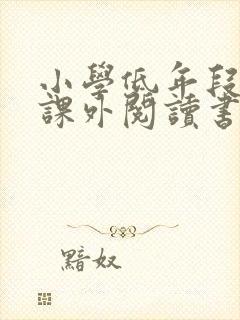 小學低年段
課外閱讀書
黯奴